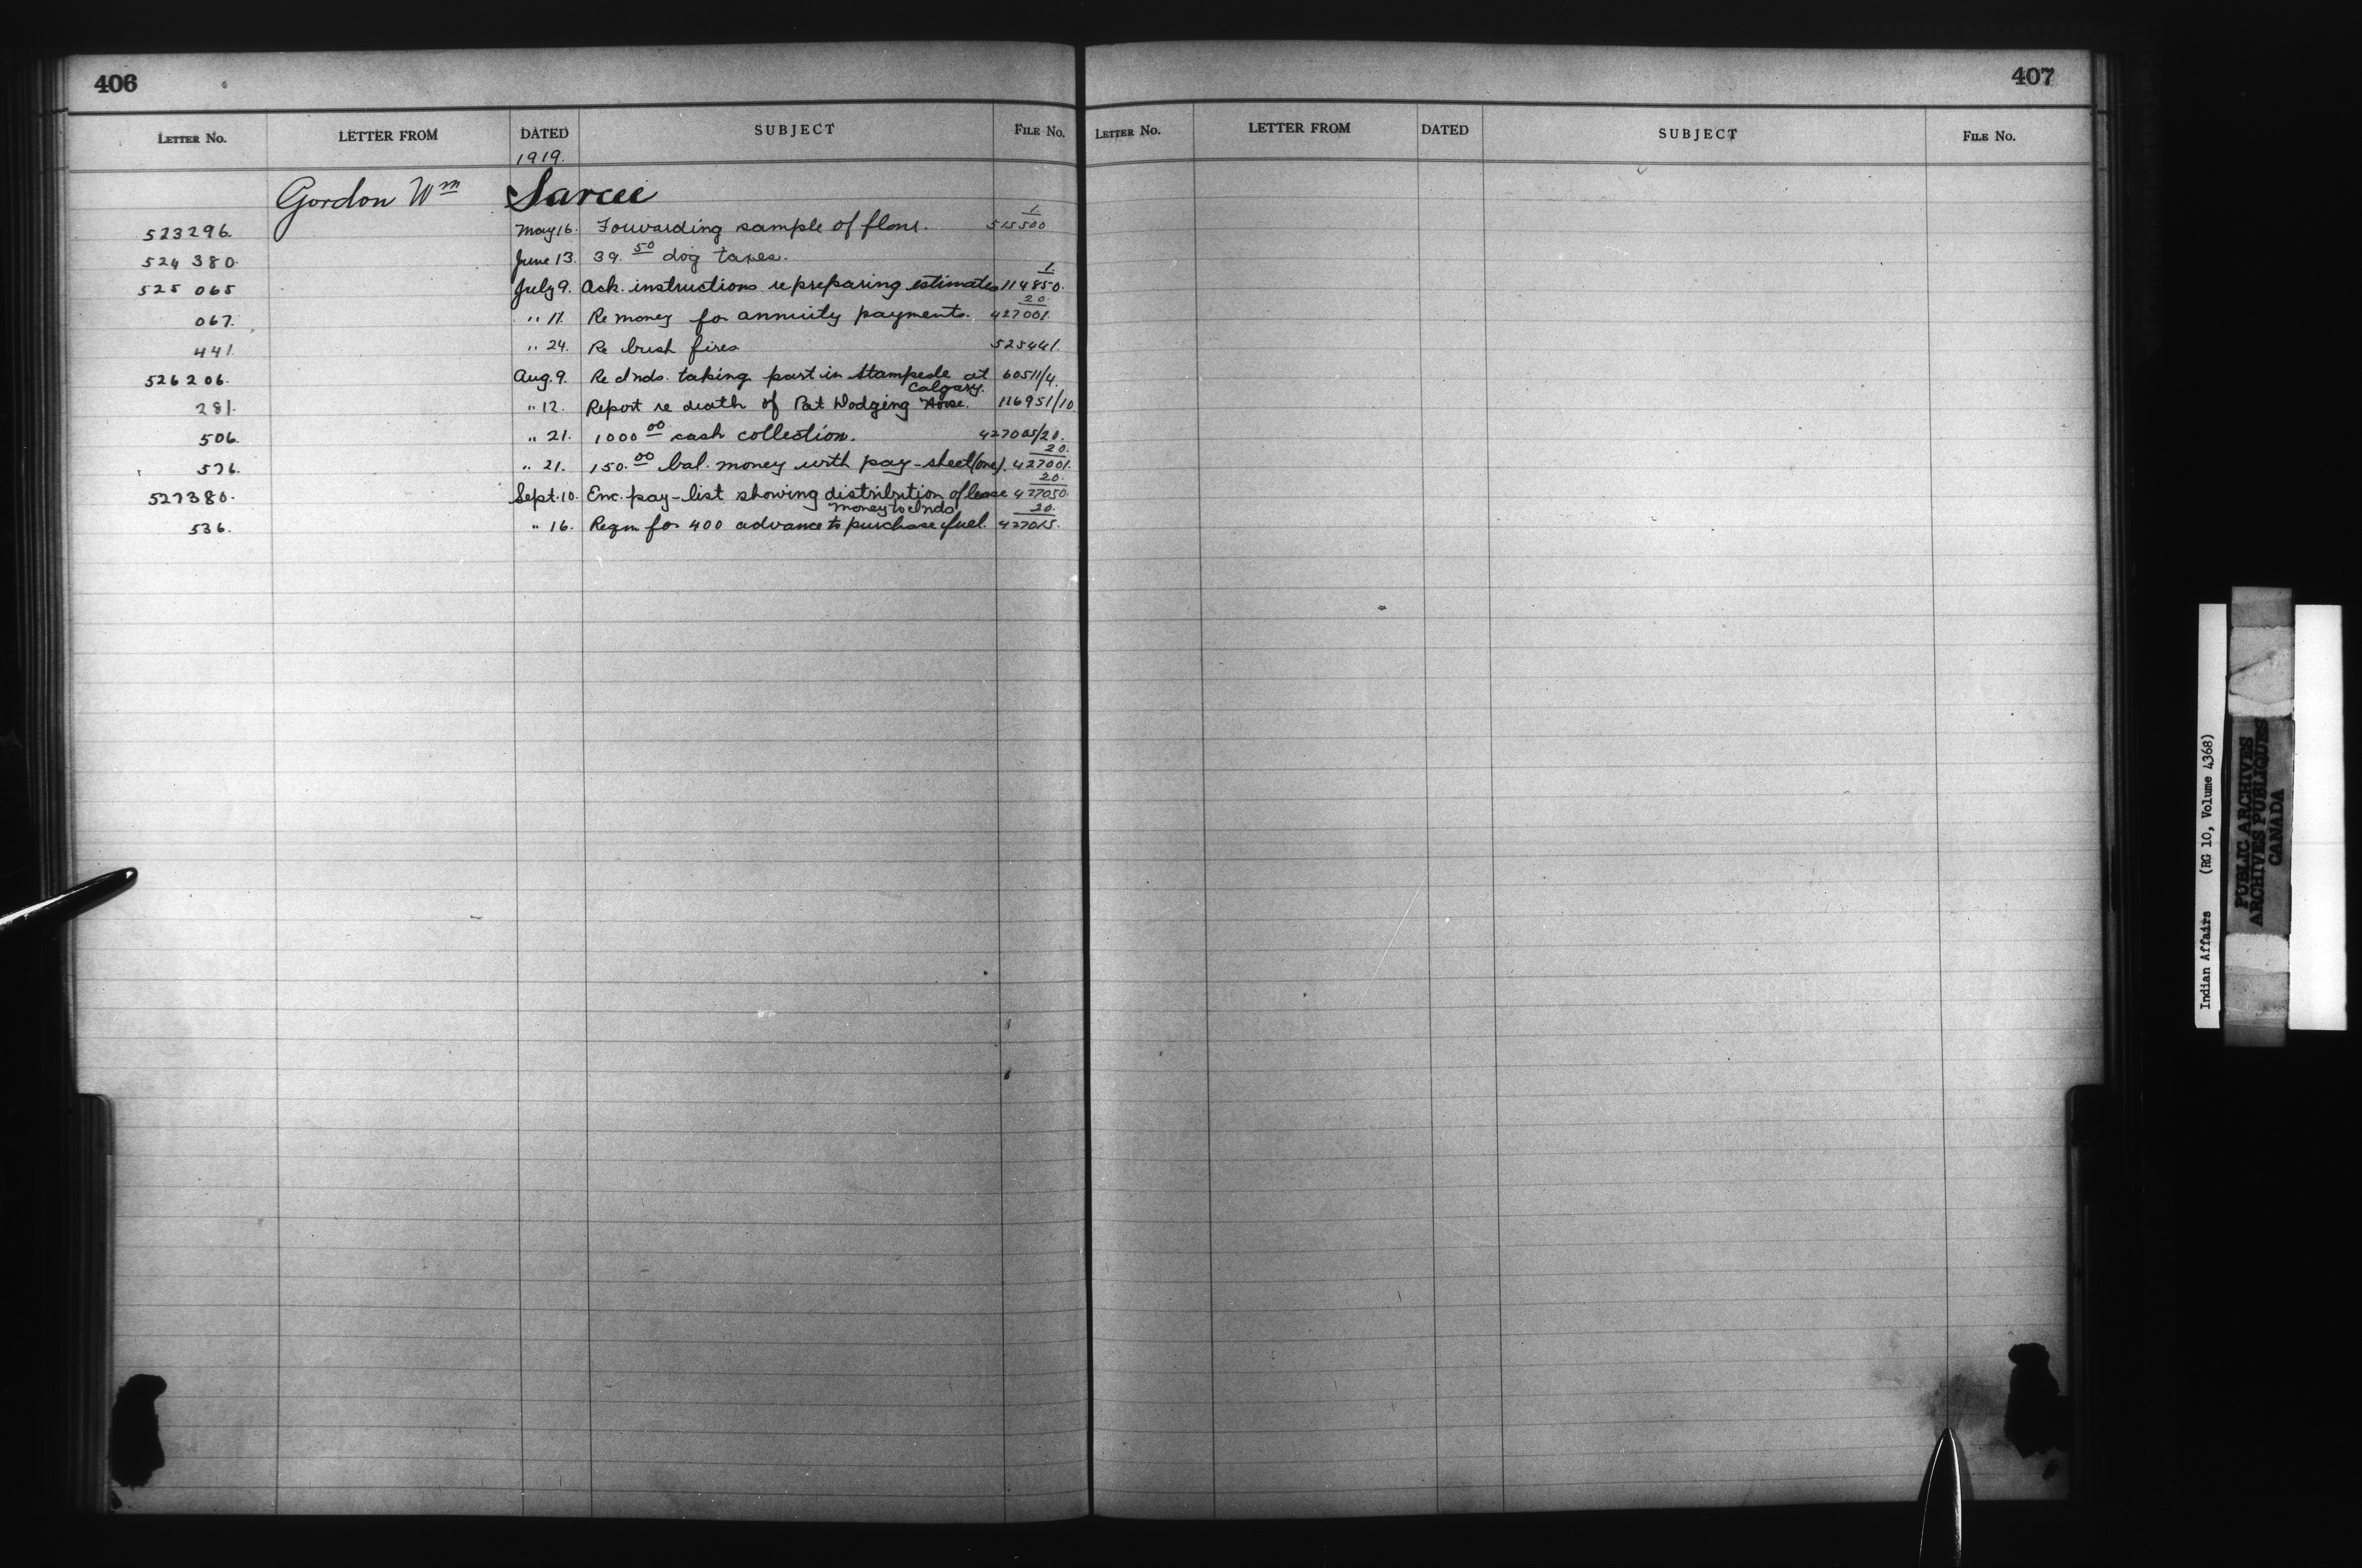 406
LETTER No. LETTER FROM DATED SUBJECT FILE No.
1919.
Gordon Wm Sarcee
523296. May 16. Forwarding sample of flour. 1/515500
524380. June 13. 39.50 dog taxes.
525065 July 9. Ack. instructions re preparing estimates 1/114850.
067. " 11. Re money for annuity payments. 20/427001.
441. " 24. Re bush fires 525441.
526206. Aug. 9. Re Inds. taking part in Stampede at Calgary. 60511/4.
281. " 12. Report re death of Pat Dodging Horse. 116951/10
506. " 21. 1000.00 cash collection. 427005/20.
576. " 21. 150.00 bal. money with pay-sheet (one). 20/427001.
527380. Sept. 10. Enc. pay-list showing distribution of lease money to Inds. 20/427050.
536. " 16. Reqm for 400 advance to purchase fuel. 20/427015.
407
LETTER No. LETTER FROM DATED SUBJECT FILE No.
Indian Affairs (RG 10, Volume 4368)
PUBLIC ARCHIVES
ARCHIVES PUBLIQUES
CANADA